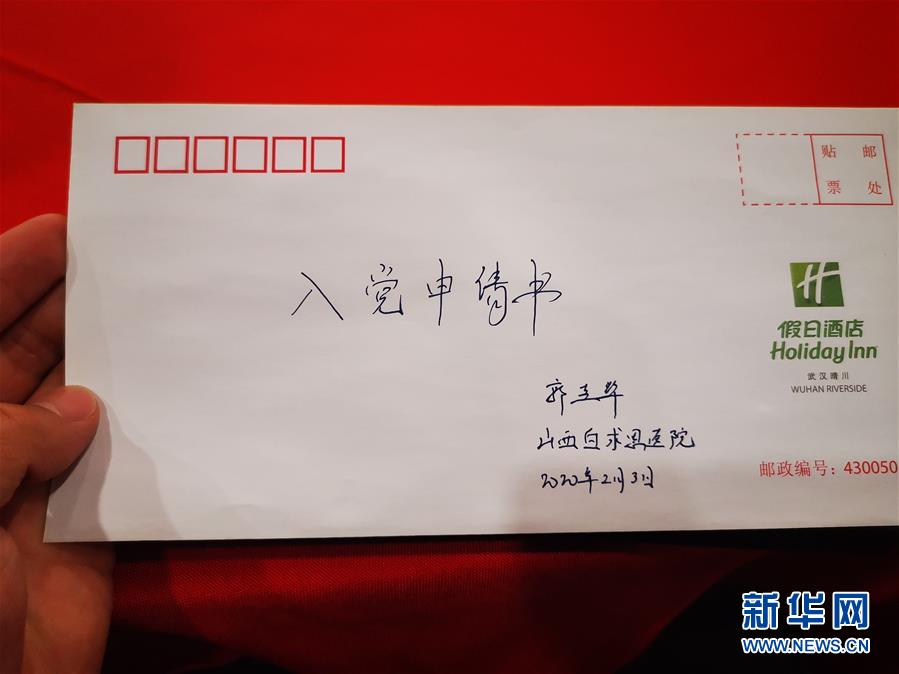 贴 邮
票 处
入党申请书
H
假日酒店
Holiday Inn
武汉晴川
WUHAN RIVERSIDE
山西白求恩医院
2020年2月3日
邮政编号：430050
新华网
WWW.NEWS.CN